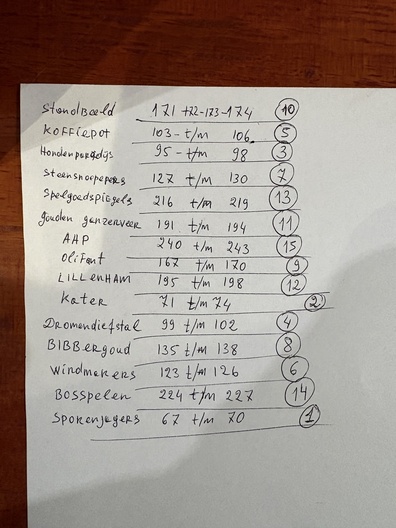 StandBeeld 171 +72-173-174 10
KOFFIEPOT 103 - t/m 106. 5
Hondenparadijs 95 - t/m 98 3
Steensnoepers 127 t/m 130 7
Spelgoadspiegels 216 t/m 219 13
gouden ganzenveer 191 t/m 194 11
AAP 240 t/m 243 15
OliFant 167 t/m 170 9
LILLENHAM 195 t/m 198 12
Kater 71 t/m 74 2
Dromendiefstal 99 t/m 102 4
BIBBergoud 135 t/m 138 8
Windmakers 123 t/m 126 6
BOSSpelen 224 t/m 227 14
Spokenjagers 67 t/m 70 1